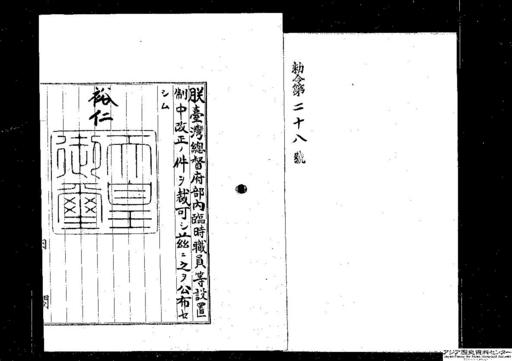 勅令第二十八號
朕臺灣總督府部內臨時職員等設置
制中改正ノ件ヲ裁可シ茲ニ之ヲ公布セ
シム
裕仁
天皇
御璽
内閣
アジア歴史資料センター